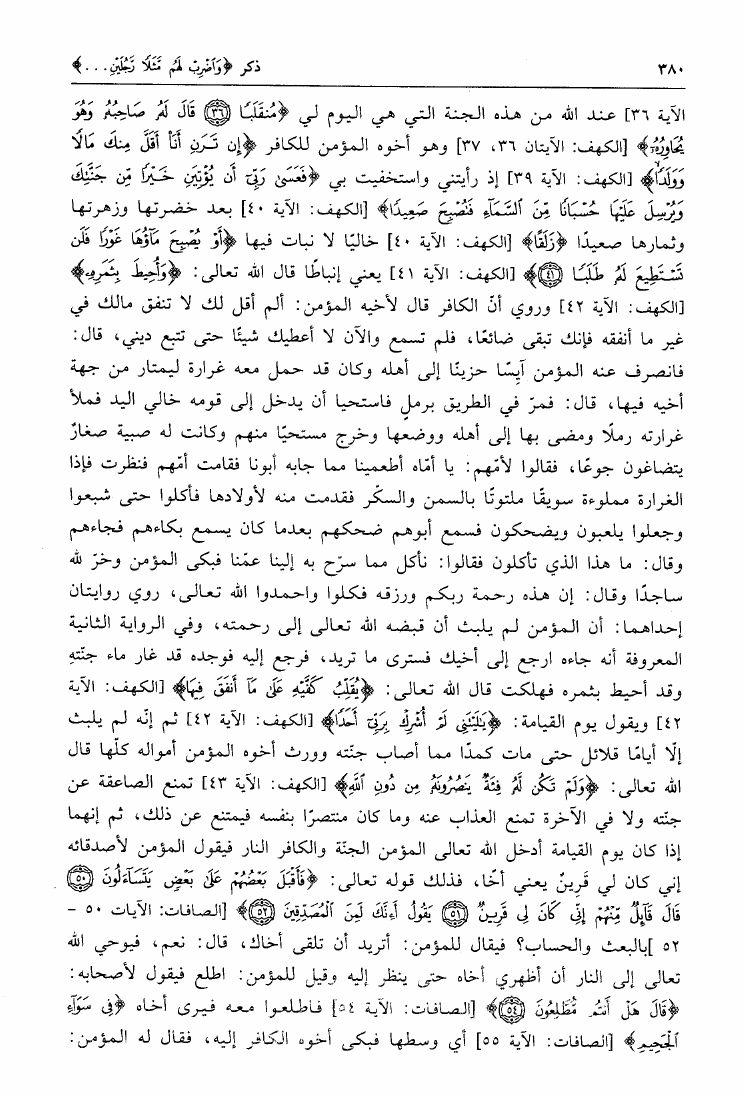 ٣٨٠ ذكر ﴿وَاضْرِبْ لَهُم مَّثَلًا رَّجُلَيْنِ...﴾
الآية ٣٦] عند الله من هذه الجنة التي هي اليوم لي ﴿مُنقَلَبًا ۝٣٦ قَالَ لَهُ صَاحِبُهُ وَهُوَ
يُحَاوِرُهُ﴾ [الكهف: الآيتان ٣٦، ٣٧] وهو أخوه المؤمن للكافر ﴿إِن تَرَنِ أَنَا أَقَلَّ مِنكَ مَالًا
وَوَلَدًا﴾ [الكهف: الآية ٣٩] إذ رأيتني واستخفيت بي ﴿فَعَسَى رَبِّي أَن يُؤْتِيَنِ خَيْرًا مِّن جَنَّتِكَ
وَيُرْسِلَ عَلَيْهَا حُسْبَانًا مِّنَ السَّمَاءِ فَتُصْبِحَ صَعِيدًا﴾ [الكهف: الآية ٤٠] بعد خضرتها وزهرتها
وثمارها صعيدًا ﴿زَلَقًا﴾ [الكهف: الآية ٤٠] خاليًا لا نبات فيها ﴿أَوْ يُصْبِحَ مَاؤُهَا غَوْرًا فَلَن
تَسْتَطِيعَ لَهُ طَلَبًا ۝٤١﴾ [الكهف: الآية ٤١] يعني إنباطًا قال الله تعالى: ﴿وَأُحِيطَ بِثَمَرِهِ﴾
[الكهف: الآية ٤٢] وروي أنّ الكافر قال لأخيه المؤمن: ألم أقل لك لا تنفق مالك في
غير ما أنفقه فإنك تبقى ضائعًا، فلم تسمع والآن لا أعطيك شيئًا حتى تتبع ديني، قال:
فانصرف عنه المؤمن آيسًا حزينًا إلى أهله وكان قد حمل معه غرارة ليمتار من جهة
أخيه فيها، قال: فمرّ في الطريق برملٍ فاستحيا أن يدخل إلى قومه خالي اليد فملأ
غرارته رملًا ومضى بها إلى أهله ووضعها وخرج مستحيًا منهم وكانت له صبية صغارٌ
يتضاغون جوعًا، فقالوا لأمّهم: يا أمّاه أطعمينا مما جابه أبونا فقامت أمّهم فنظرت فإذا
الغرارة مملوءة سويقًا ملتوتًا بالسمن والسكّر فقدمت منه لأولادها فأكلوا حتى شبعوا
وجعلوا يلعبون ويضحكون فسمع أبوهم ضحكهم بعدما كان يسمع بكاءهم فجاءهم
وقال: ما هذا الذي تأكلون فقالوا: نأكل مما سرّح به إلينا عمّنا فبكى المؤمن وخرّ لله
ساجدًا وقال: إن هذه رحمة ربكم ورزقه فكلوا واحمدوا الله تعالى، روي روايتان
إحداهما: أن المؤمن لم يلبث أن قبضه الله تعالى إلى رحمته، وفي الرواية الثانية
المعروفة أنه جاءه ارجع إلى أخيك فسترى ما تريد، فرجع إليه فوجده قد غار ماء جنّتهِ
وقد أحيط بثمره فهلكت قال الله تعالى: ﴿يُقَلِّبُ كَفَّيْهِ عَلَى مَا أَنفَقَ فِيهَا﴾ [الكهف: الآية
٤٢] ويقول يوم القيامة: ﴿يَالَيْتَنِي لَمْ أُشْرِكْ بِرَبِّي أَحَدًا﴾ [الكهف: الآية ٤٢] ثم إنّه لم يلبث
إلّا أيامًا قلائل حتى مات كمدًا مما أصاب جنّته وورث أخوه المؤمن أمواله كلّها قال
الله تعالى: ﴿وَلَمْ تَكُن لَّهُ فِئَةٌ يَنصُرُونَهُ مِن دُونِ اللَّهِ﴾ [الكهف: الآية ٤٣] تمنع الصاعقة عن
جنّته ولا في الآخرة تمنع العذاب عنه وما كان منتصرًا بنفسه فيمتنع عن ذلك، ثم إنهما
إذا كان يوم القيامة أدخل الله تعالى المؤمن الجنّة والكافر النار فيقول المؤمن لأصدقائه
إني كان لي قَرينٌ يعني أخًا، فذلك قوله تعالى: ﴿فَأَقْبَلَ بَعْضُهُمْ عَلَى بَعْضٍ يَتَسَاءَلُونَ ۝٥٠
قَالَ قَائِلٌ مِّنْهُمْ إِنِّي كَانَ لِي قَرِينٌ ۝٥١ يَقُولُ أَءِنَّكَ لَمِنَ الْمُصَدِّقِينَ ۝٥٢﴾ [الصافات: الآيات ٥٠ -
٥٢ ]بالبعث والحساب؟ فيقال للمؤمن: أتريد أن تلقى أخاك، قال: نعم، فيوحي الله
تعالى إلى النار أن أظهري أخاه حتى ينظر إليه وقيل للمؤمن: اطلع فيقول لأصحابه:
﴿قَالَ هَلْ أَنتُم مُّطَّلِعُونَ ۝٥٤﴾ [الصافات: الآية ٥٤] فاطلعوا معه فيرى أخاه ﴿فِي سَوَاءِ
الْجَحِيمِ﴾ [الصافات: الآية ٥٥] أي وسطها فبكى أخوه الكافر إليه، فقال له المؤمن: